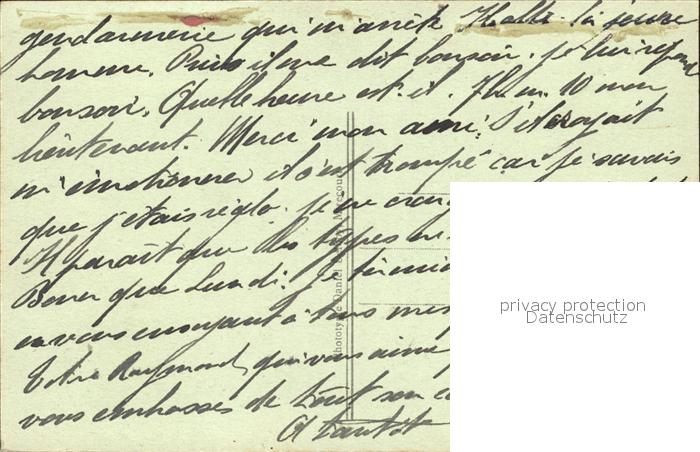 gendarmerie qui m'arrête Halte-là jeune
homme. Puis il me dit bonsoir. je lui répond
bonsoir. Quelle heure est-il. 7h m. 10 mon
lieutenant. Merci mon ami. S'il croyait
m'émotionner il s'est trompé car je savais
que j'étais réglo. je ne
Il parait que les types
que Lundi. je termine
en vous envoyant à tous mes
Votre Raymond qui vous aime
vous embrasse de tout son
A tantôt
Phototypie Daniel Mirecourt
privacy protection
Datenschutz